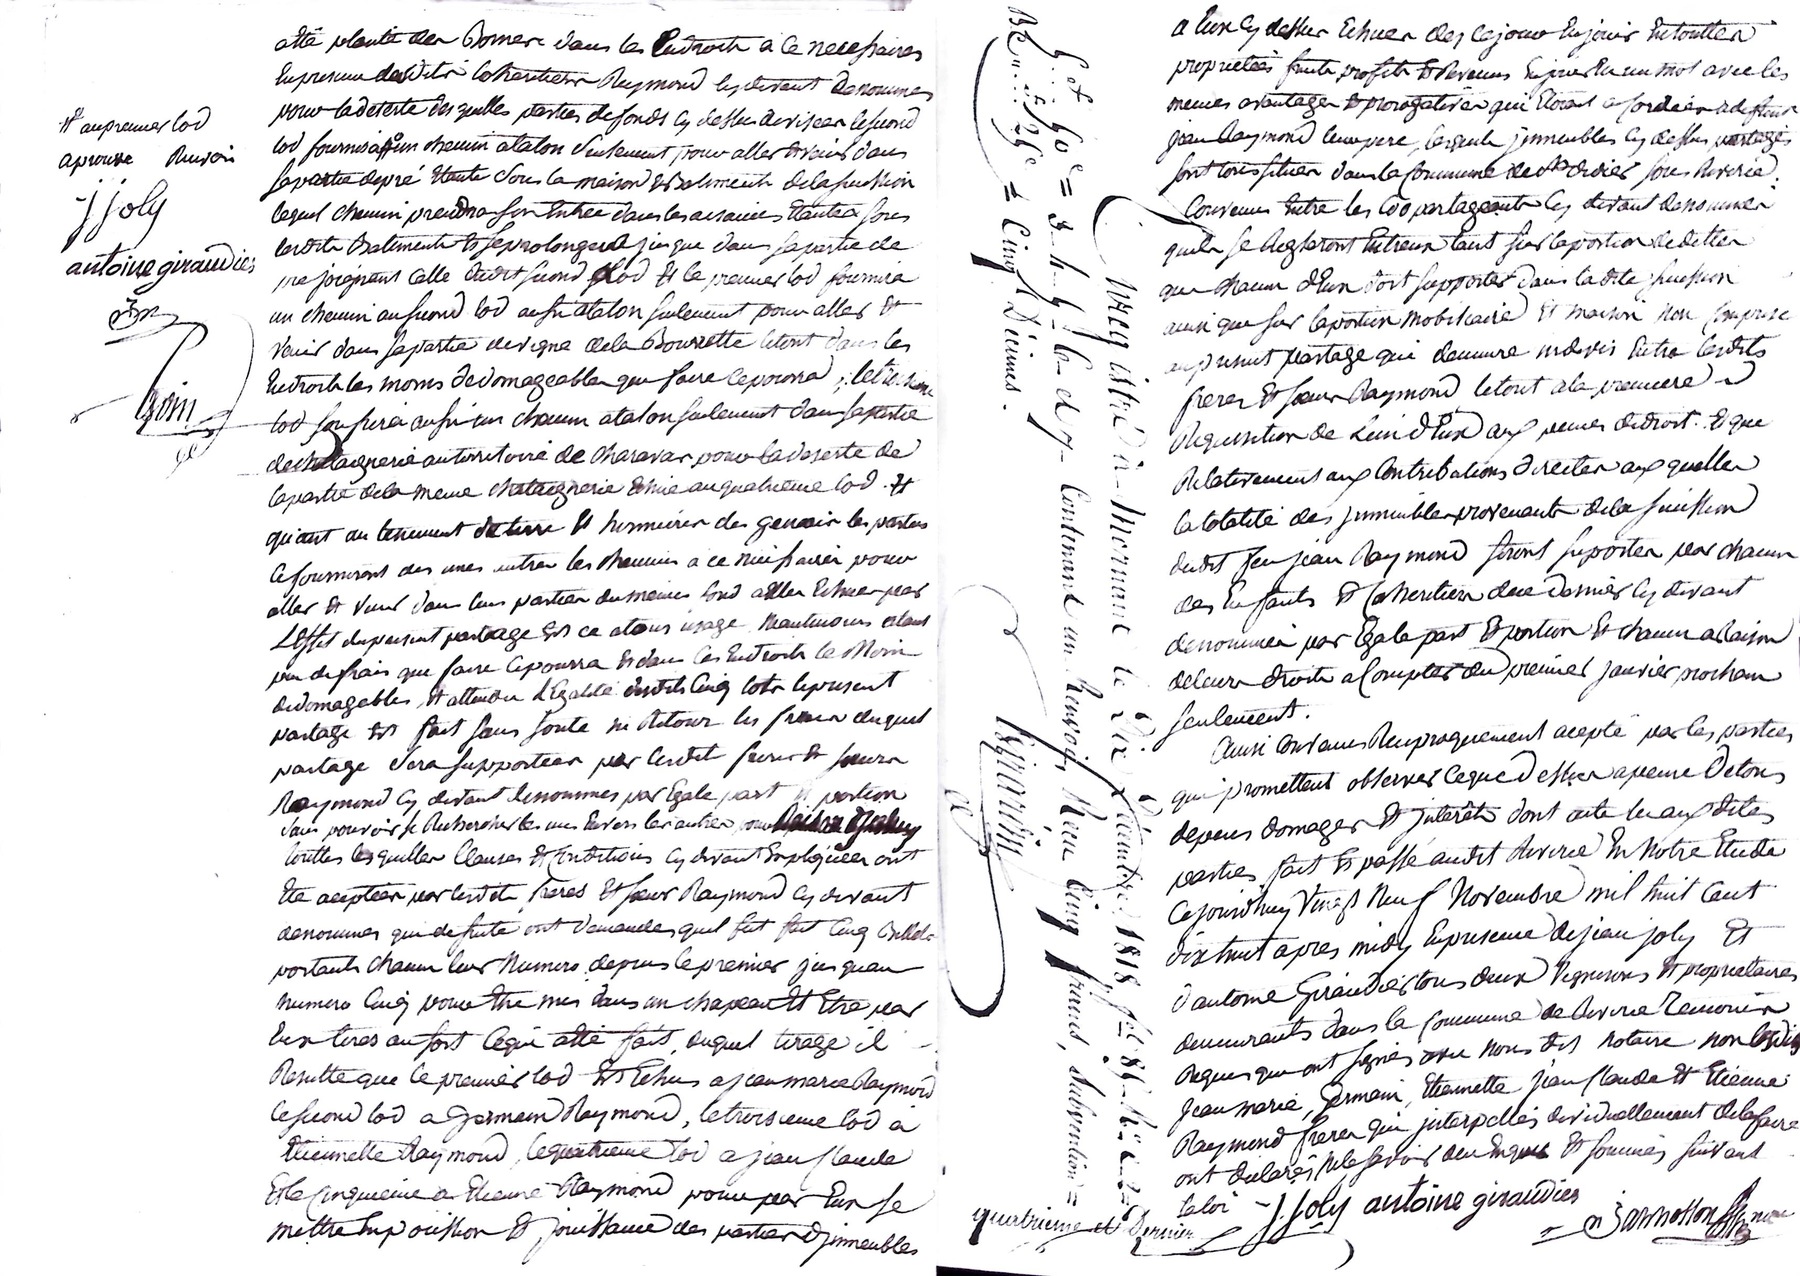 atté planté des Bornes dans les Endroits a ce necessaires
En presence desdits Coheritiers Raymond cy devant denommes
pour la deserte des quelles parties de fonds cy dessus divisées le second
lod fournira un chemin a talon seulement pour aller et venir dans
sa partie de pré étante sous la maison et Batiments de la succession
lequel chemin prendra son Entrée dans les aisances étantes sous
lesdits Batiments et se prolongera jusque dans sa partie de
pré joignant celle dudit second lod et le premier lod fournira
un chemin au second lod aussi a talon seulement pour aller et
venir dans sa partie de vigne de la Bourrette le tout dans les
Endroits les moins dedomageables que faire ce poura ; le troisieme
lod souffrira aussi un chemin a talon seulement dans sa partie
de chataignerie au territoire de Charavas pour la deserte de
la partie de la meme chataignerie Echue au quatrieme lod. Et
quant au tenement de terre et hermieres des genets les parties
ce fourniront des unes autres les chemins a ce necessaires pour
aller et venir dans leurs parties du meme fond a elles Echues par
L'effet du present partage et ce a tous usage
peu de frais que faire ce pourra et dans les Endroits le Moin
dedomageables, et attendu l'Egalité desdits Cinq lots le present
partage est fait sans soute ni retour les frais duquel
partage sera supportées par lesdit freres et sœurs
Raymond cy devant denommes par Egale part et portion
sans pouvoir se Rechercher les uns Envers les autres pour
touttes lesquelles Clauses et Conditions cy devant Expliquées ont
Été aceptées par lesdits freres et sœur Raymond cy devant
denommes qui de suite ont demandés quil fut fait Cinq Billets
portants chacun leur Numero depuis le premier jusquau
numero Cinq pour être mis dans un chapeau Et Etre par
Eux tirés au sort Ce qui atté fait, duquel tirage il
Resulte que le premier lod Est Echus a jean marie Raymond
le second lod a Germain Raymond, le troisieme lod a
Etiennette Raymond, le quatrieme lod a jean Claude
Et le Cinquieme a Etienne Raymond pour par Eux se
mettre En possession et jouissance des parties d'jmmeubles
Et au premier lod
aprouvé Renvoi
J joly
antoine giraudier
a Eux cy dessus Echues des ce jour En jouir En touttes
proprietées fruits profits et Revenus En jouir En un mot avec les
memes avantages et prerogatives qui Etoient accordées a deffunt
jean Raymond leur pere, lesquels jmmeubles cy dessus partagés
sont tous situés dans la Commune de St didier sous Riverie.
Convenus Entre les Copartageants cy devant denommés
quils se Regleront Entreux tant sur la portion de dettes
que chacun d'Eux doit supporter dans la dite succession
ainsi que sur la portion mobiliaire et maison non Comprise
au present partage qui demeure indivis Entre lesdits
freres et sœur Raymond le tout a la premiere
Requisition de l'un d'Eux aux peines de droit. Et que
Relativement aux Contributions directes aux quelles
la totalité des jmmeubles provenants de la succession
dudit feu jean Raymond seront suportés par chacun
des Enfants et Coheritiers de ce dernier cy devant
denommés par Egale part et portion et chacun a Raison
de leurs droits a Compter du premier janvier prochain
seulement.
Ainsi Convenus Reciproquement acepté par les parties
qui promettent observer ce que dessus a peine de tous
depens domages et jnterêts dont acte lu aux dites
parties, fait et passé audit Riverie En Notre Etude
Cejourdhuy Vingt Neuf Novembre mil huit Cent
dix huit apres midy En presence de jean joly Et
d'antoine Giraudier tous deux Vignerons et proprietaires
demeurants dans la Commune de Riverie Temoins
Requis qui ont signés avec nous dit notaire non lesdits
jean marie, Germain, Etiennette jean Claude et Etienne
Raymond freres qui jnterpellés dividuellement de le faire
ont declarés ne le savoir de ce Enquis et sommés suivant
la loi
J Joly antoine giraudier
quatrieme et dernier
Enregistré à Mornant le Dix Décembre 1818
Contenant un Renvoi, Reçu cinq francs, subvention
Cinq Décimes.